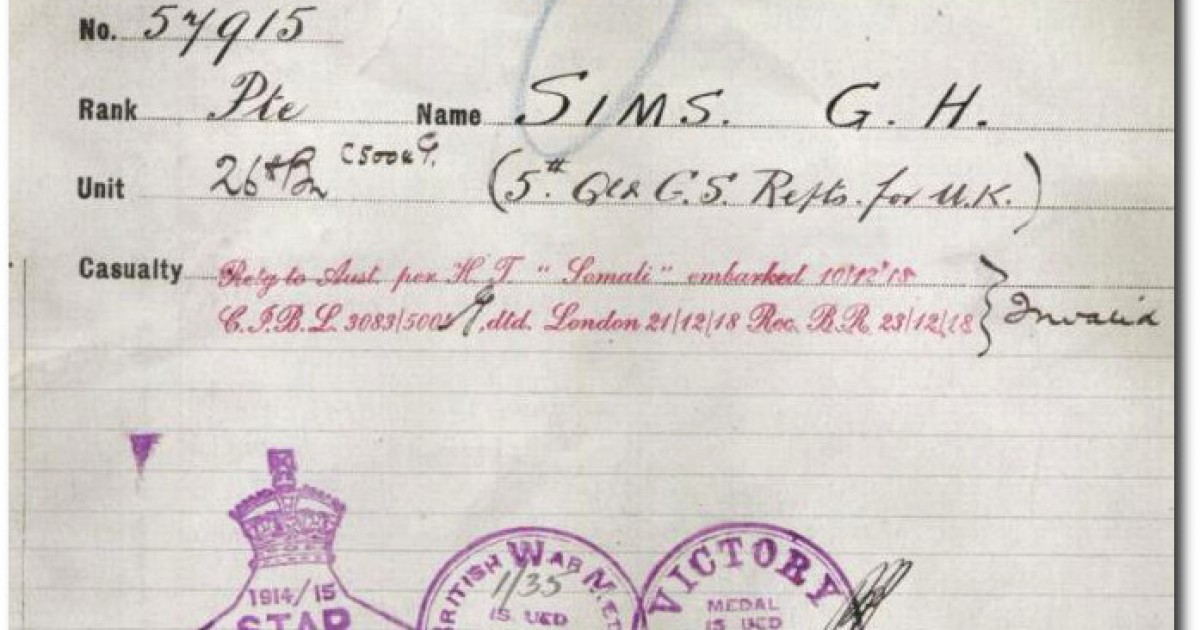 No. 57915
Rank Pte Name SIMS. G. H.
Unit 26th Bn (5th Qld G.S. Refts. for U.K.)
Casualty Re'g to Aust. per H. T. "Somali" embarked 10/12/18
C.I.B.L. 3083/500 dtd. London 21/12/18 Rec. B.R. 23/12/18 } Invalid
1914/15
STAR
BRITISH WAR MED
1/35
IS UED
VICTORY
MEDAL
IS UED